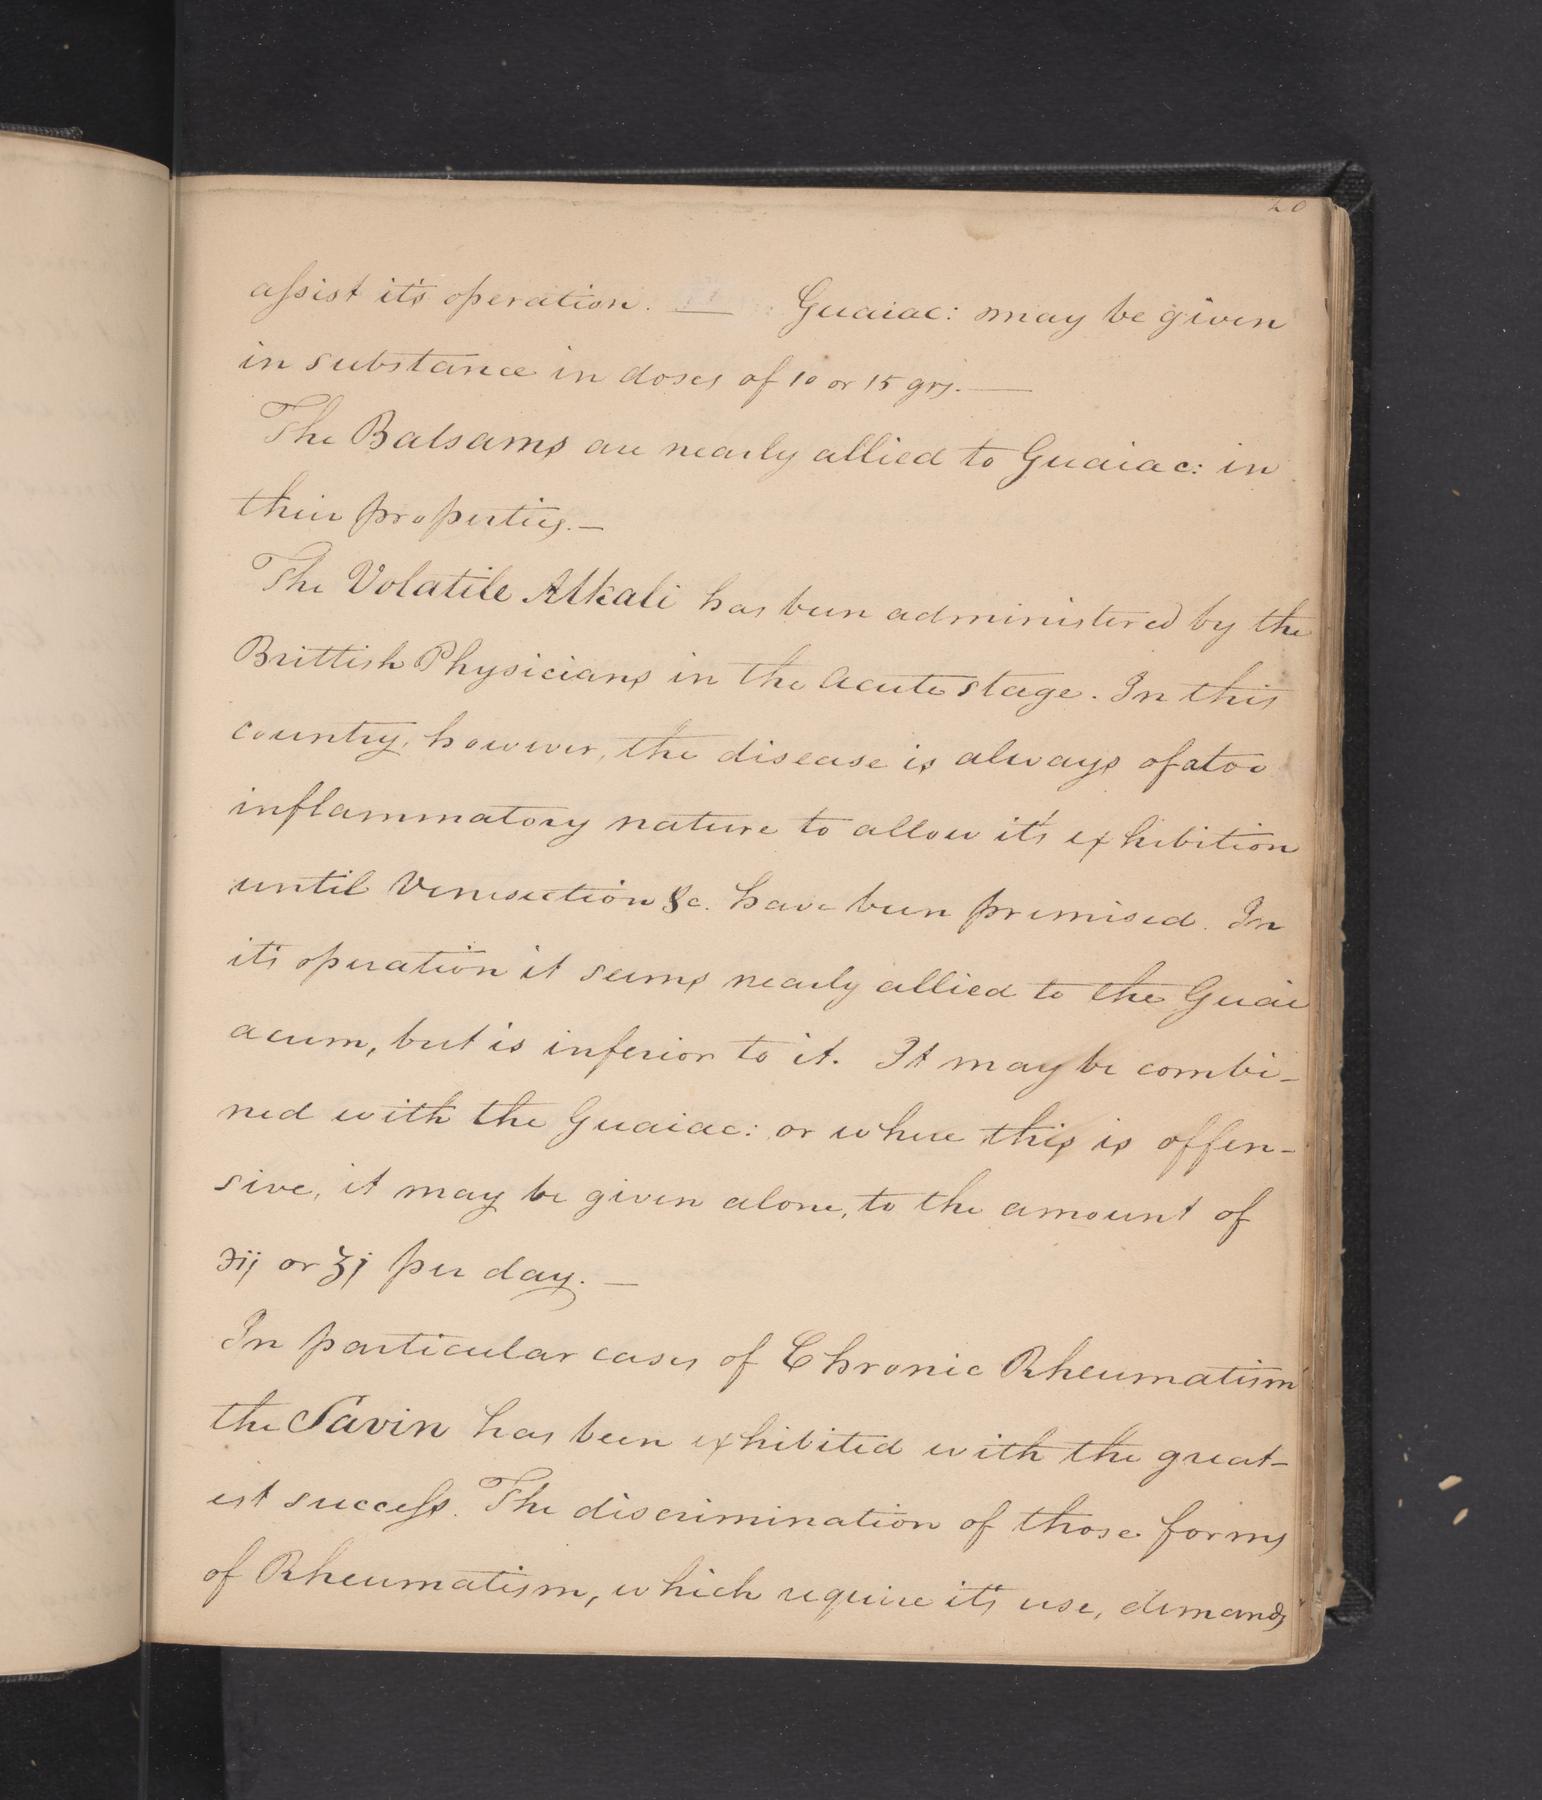 20
assist it's operation. — Guaiac: may be given
in substance in doses of 10 or 15 grs. —
The Balsams are nearly allied to Guaiac: in
their properties. —
The Volatile Alkali has been administered by the
Brittish Physicians in the acute stage. In this
country, however, the disease is always of a too
inflammatory nature to allow it's exhibition
until Venesection &c. have been premised. In
it's operation it seems nearly allied to the Guai
acum, but is inferior to it. It may be combi-
ned with the Guaiac: or where this is offen-
sive, it may be given alone, to the amount of
℈ij or ʒj per day. —
In particular cases of Chronic Rheumatism
the Savin has been exhibited with the great-
est success. The discrimination of those forms
of Rheumatism, which require it's use, demands